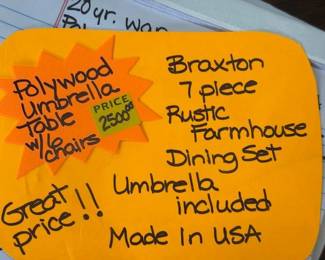 20 yr. war
Polywood
Umbrella
Table
w/6
chairs
PRICE
2500.00
Great
price!!
Braxton
7 piece
Rustic
Farmhouse
Dining Set
Umbrella
included
Made In USA